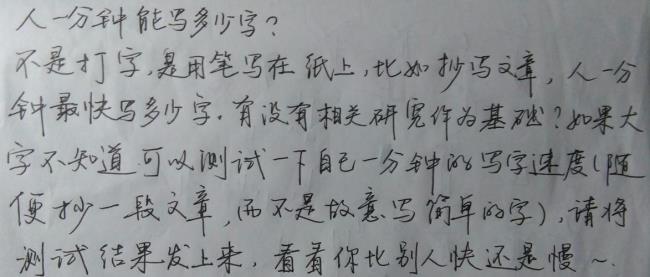 人一分钟能写多少字？
不是打字，是用笔写在纸上，比如抄写文章，人一分
钟最快写多少字。有没有相关研究作为基础？如果大
字不知道可以测试一下自己一分钟的写字速度（随
便抄一段文章，而不是故意写简单的字），请将
测试结果发上来，看看你比别人快还是慢～.